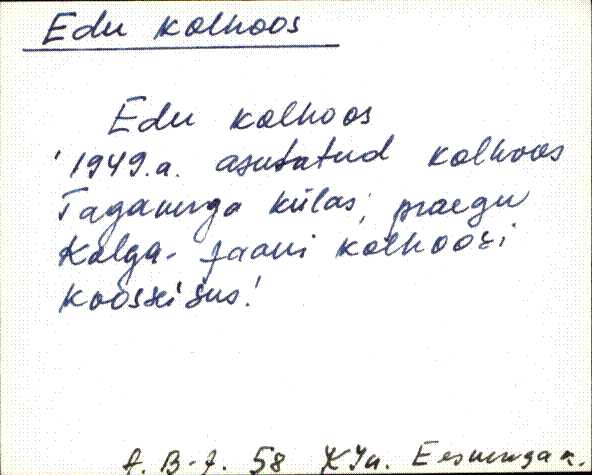 Edu kolhoos
Edu kolhoos
1949.a. asutatud kolhoos
Taganurga külas, praegu
Kolga-Jaani kolhoosi
koosseisus!
A. B-J. 58 KJn. Eesnurga k.